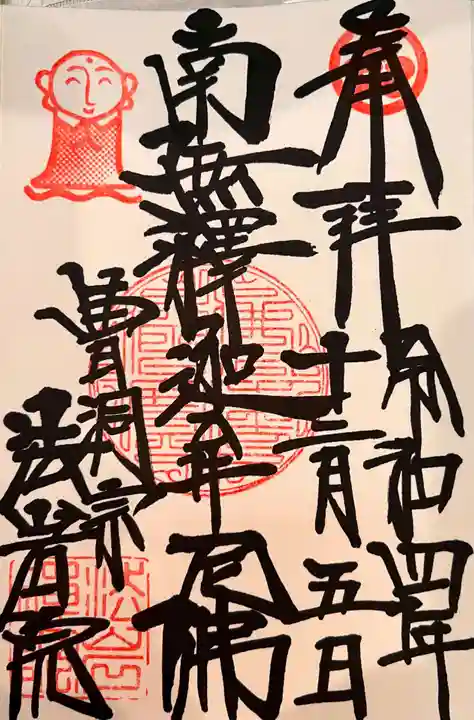 奉拝
令和四年
十二月五日
南無釋迦牟尼佛
曹洞宗
法 院